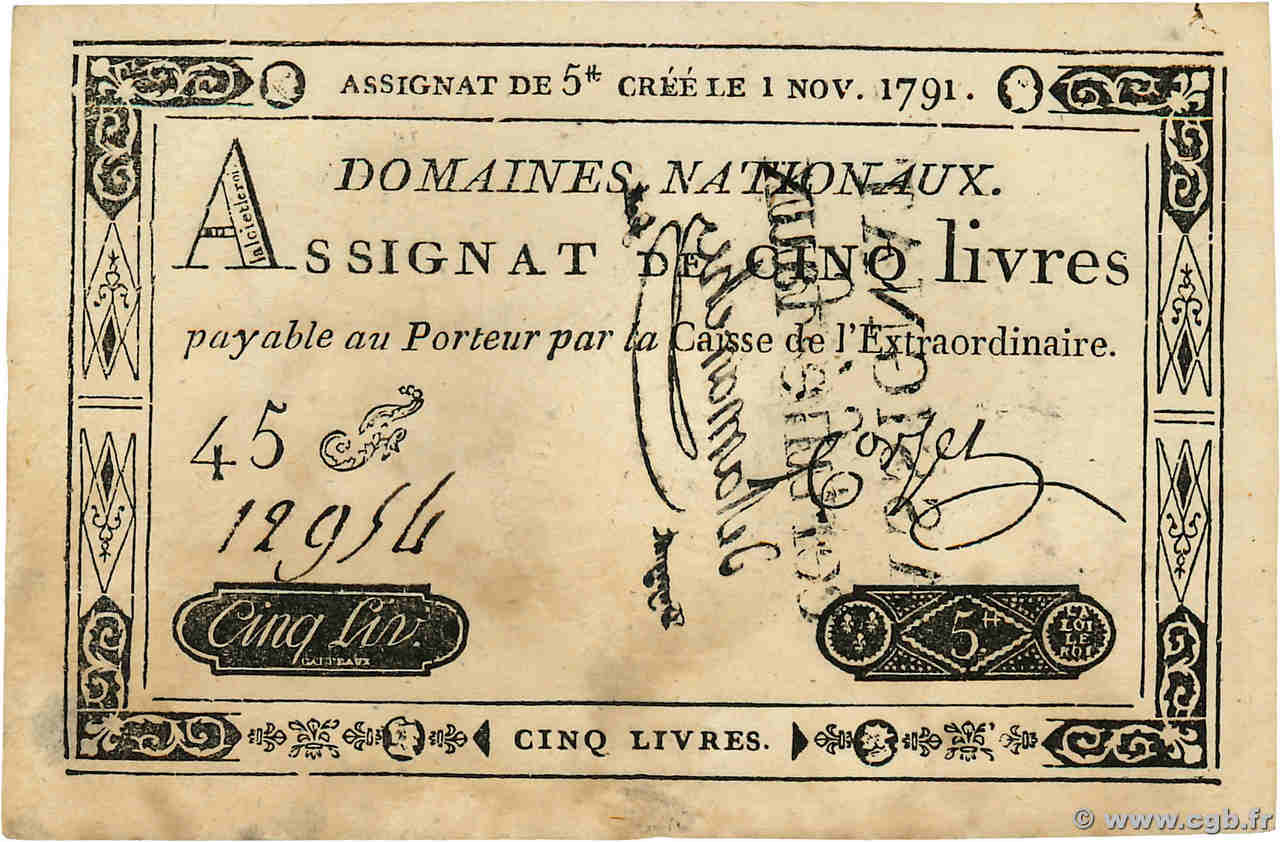 ASSIGNAT DE 5tt CRÉÉ LE 1 NOV. 1791.
DOMAINES NATIONAUX.
la loi et le roi
ASSIGNAT DE CINQ livres
payable au Porteur par la Caisse de l'Extraordinaire.
45
12954
Corsel
Cinq Liv.
GATTEAUX
5tt
LA LOI LE ROI
CINQ LIVRES.
© www.cgb.fr